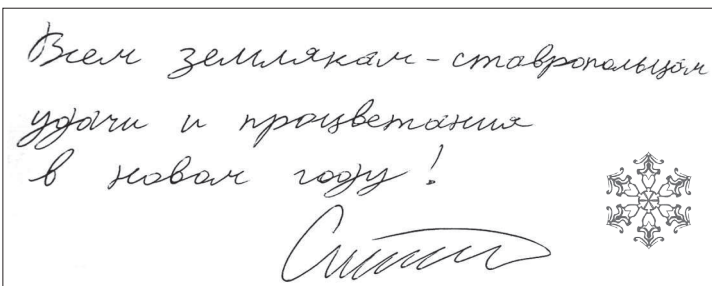 Всем землякам-ставропольцам
удачи и процветания
в новом году!